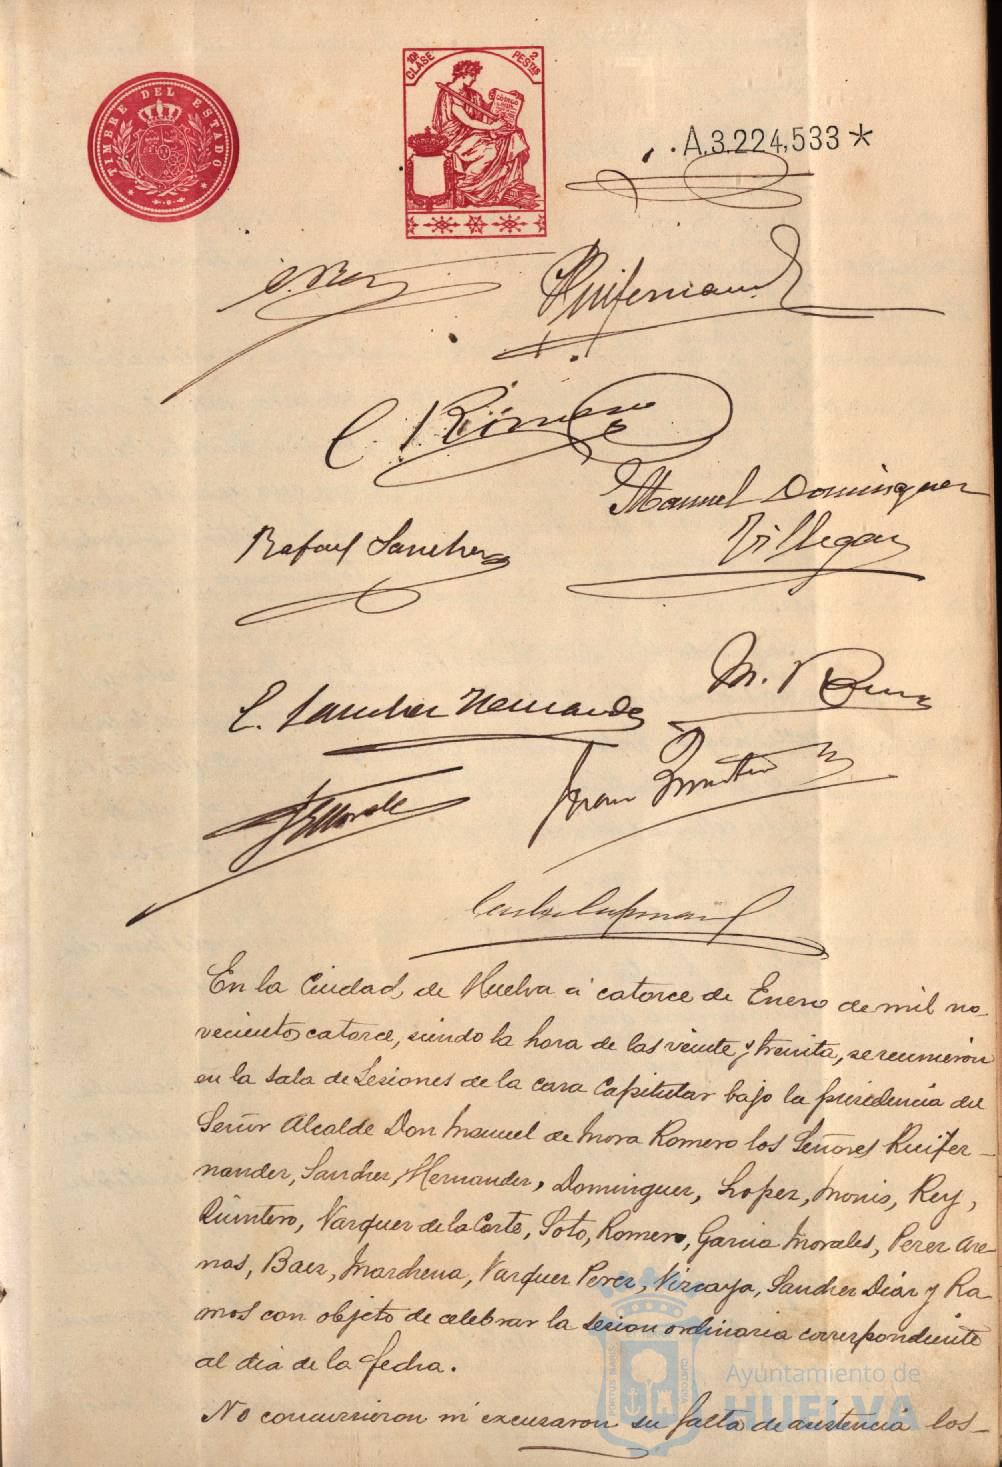 TIMBRE DEL ESTADO
10ª CLASE 2 PESTAS
A.3.224,533*
C. Romero
Manuel Dominguez
Villegas
Rafael Sanchez
E. Sanchez Hernandez
Juan Quintero
En la Ciudad de Huelva á catorce de Enero de mil no-
vecientos catorce, siendo la hora de las veinte y treinta, se reunieron
en la Sala de Sesiones de la casa Capitular bajo la presidencia del
Señor Alcalde Don Manuel de Mora Romero los Señores Ruifer-
nandez, Sanchez Hernandez, Dominguez, Lopez, Monis, Rey,
Quintero, Vazquez de la Corte, Soto, Romero, Garcia Morales, Perez Are-
nas, Baez, Marchena, Vazquez Perez, Vizcaya, Sanchez Diaz y Ra-
mos con objeto de celebrar la sesion ordinaria correspondiente
al dia de la fecha.
No concurrieron ni excusaron su falta de asistencia los-
Ayuntamiento de
HUELVA